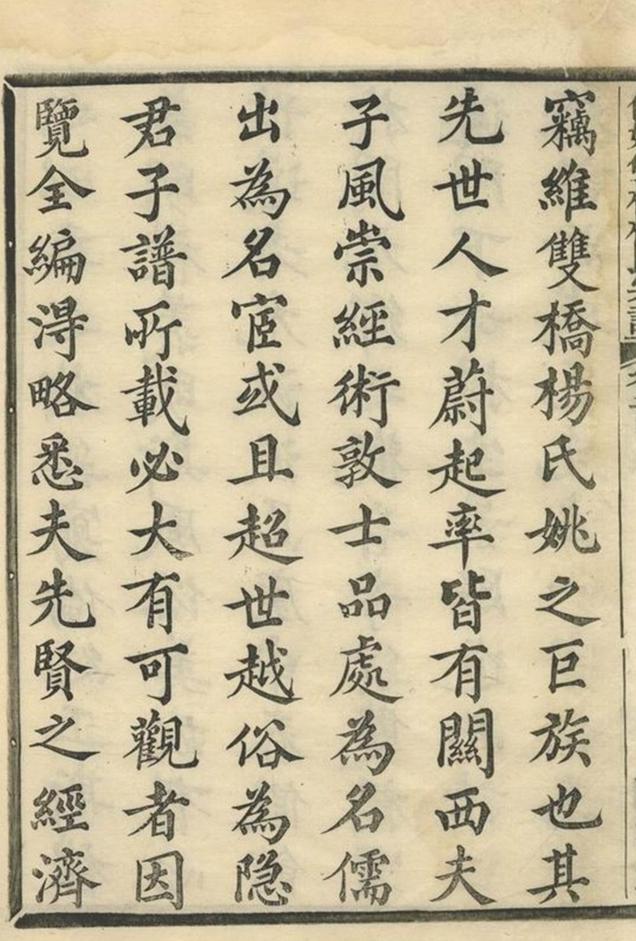 竊維雙橋楊氏姚之巨族也其
先世人才蔚起率皆有關西夫
子風崇經術敦士品處為名儒
出為名宦或且超世越俗為隐
君子譜所載必大有可觀者因
覽全編淂略悉夫先賢之經濟